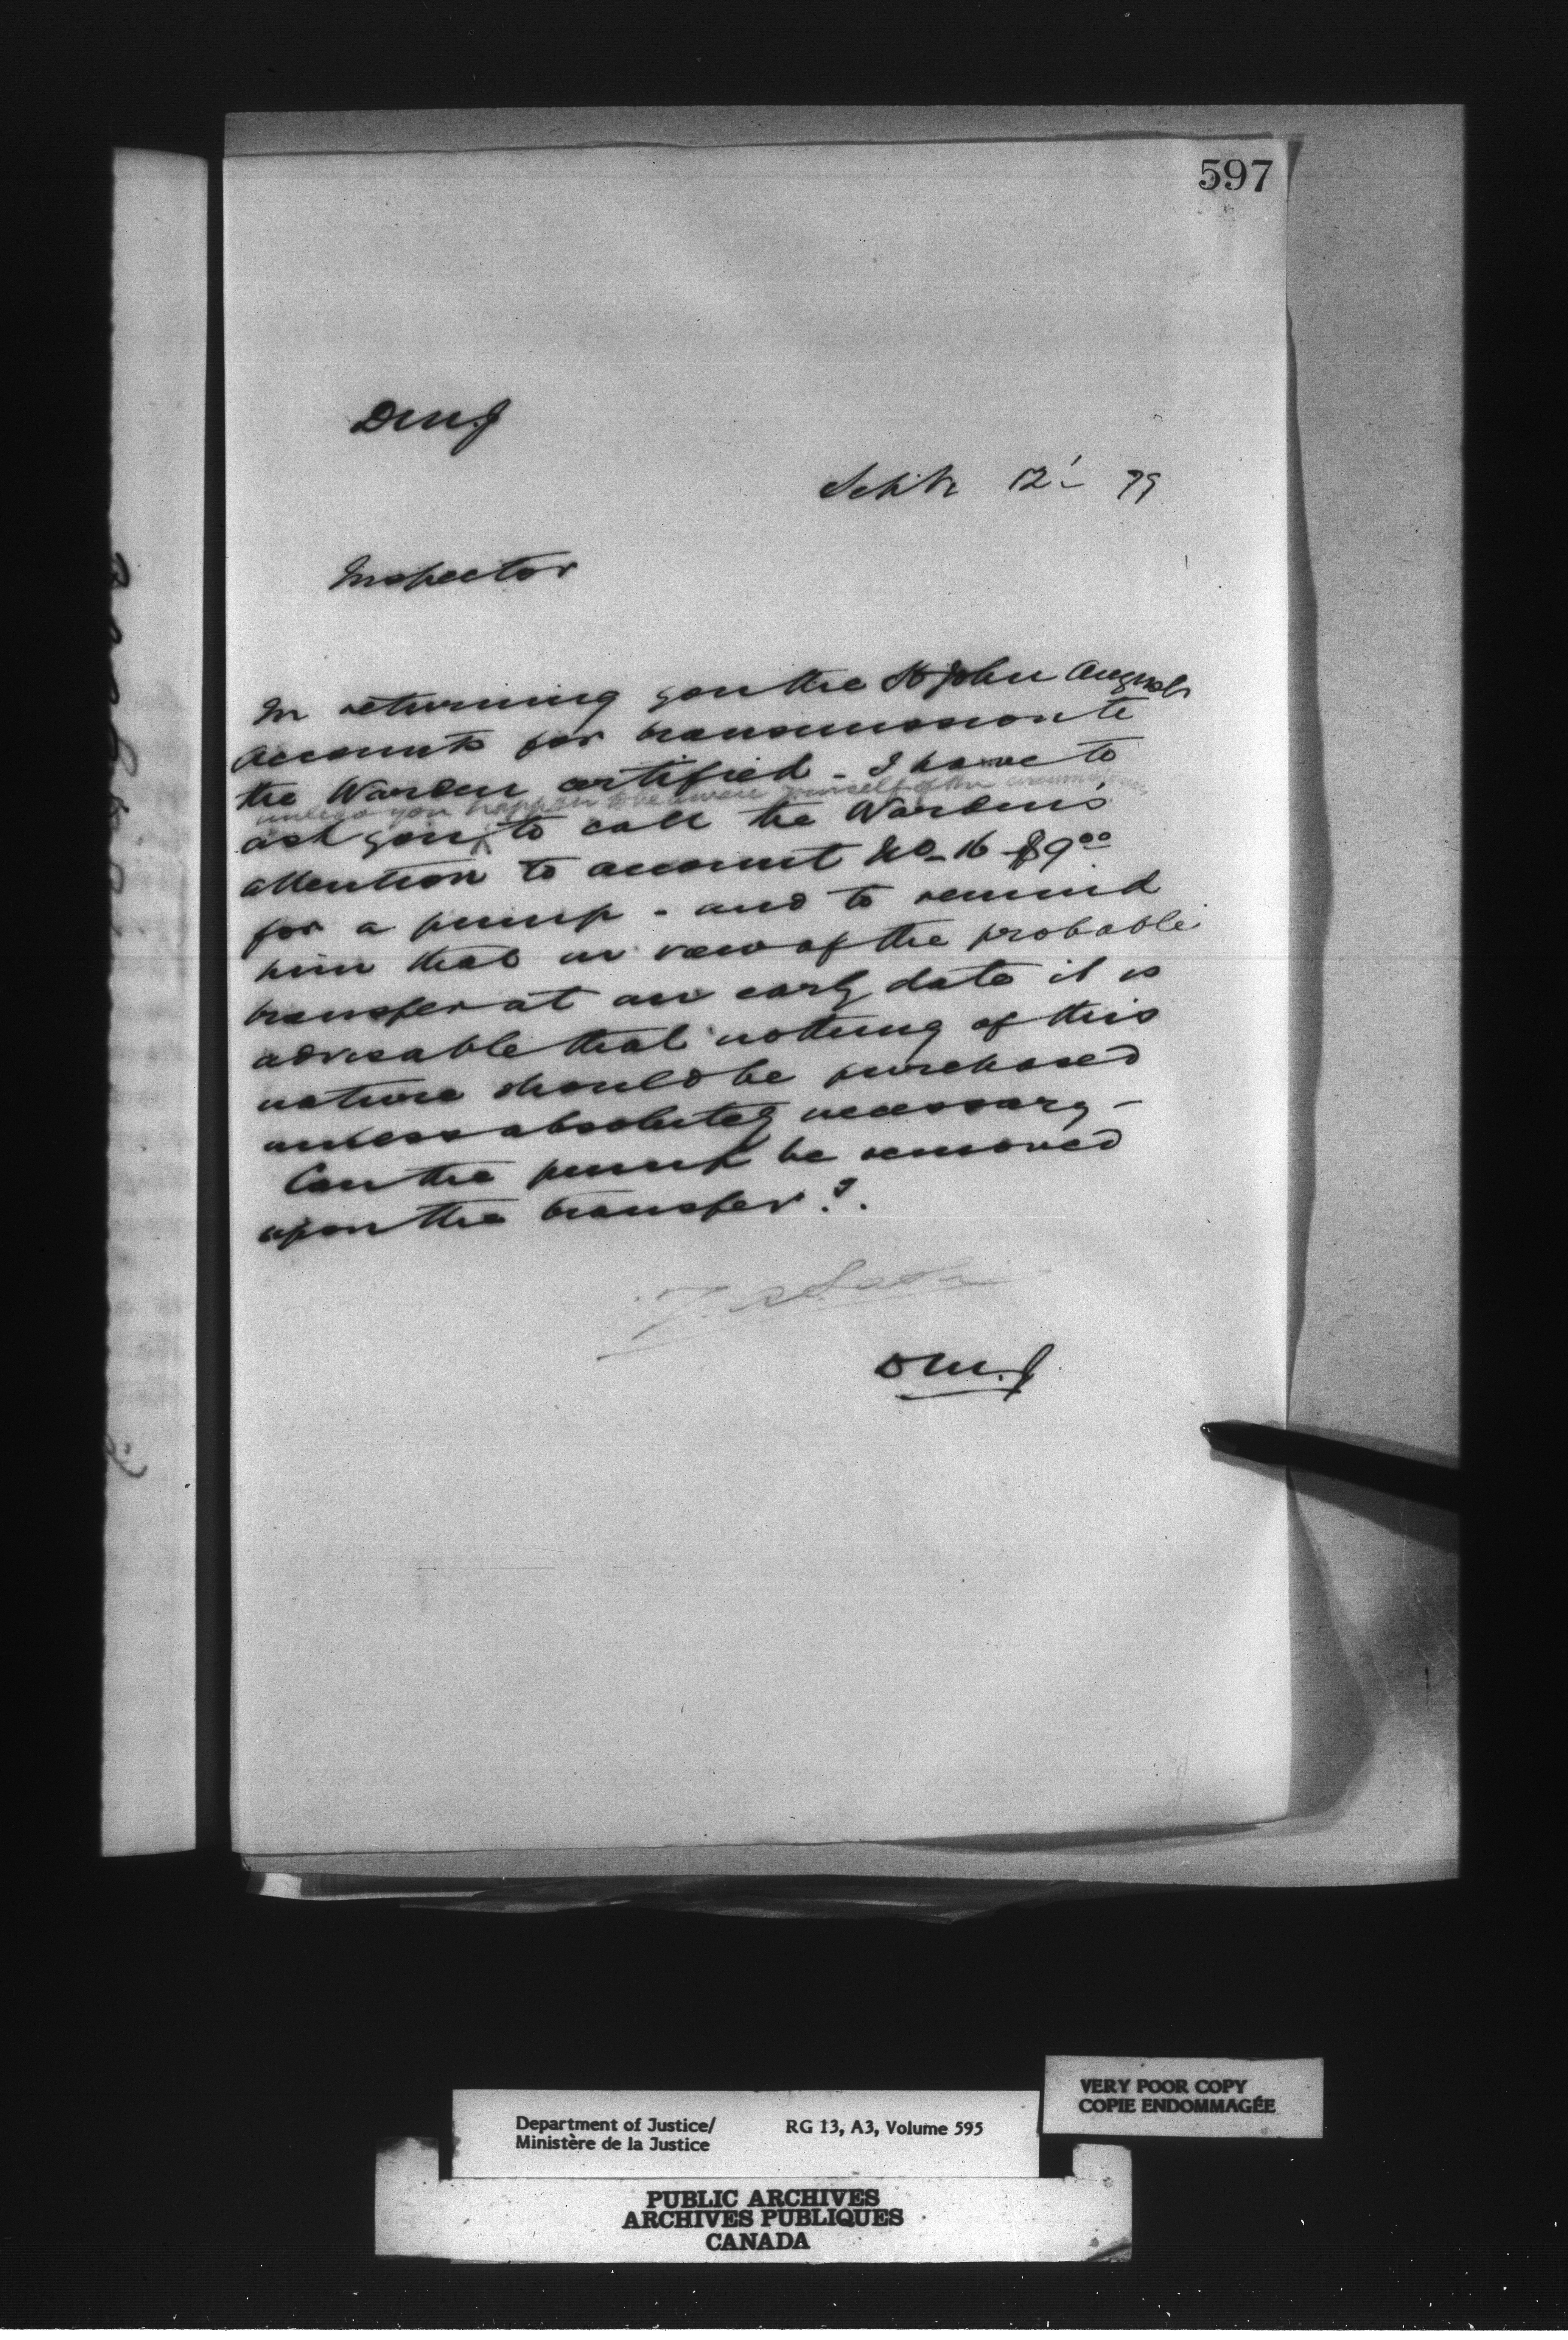 597
DMJ
Septr 12'- 79
Inspector
In returning you the St John August
accounts for transmission to
the Warden certified - I have to
unless you happen to be aware yourself of the circumstances
ask you to call the Warden's
attention to account No- 16 $9 00
for a pump - and to remind
him that in view of the probable
transfer at an early date it is
advisable that nothing of this
nature should be purchased
unless absolutely necessary -
Can the pump be removed
upon the transfer?.
D M. J
VERY POOR COPY
COPIE ENDOMMAGÉE
Department of Justice/ RG 13, A3, Volume 595
Ministère de la Justice
PUBLIC ARCHIVES
ARCHIVES PUBLIQUES
CANADA